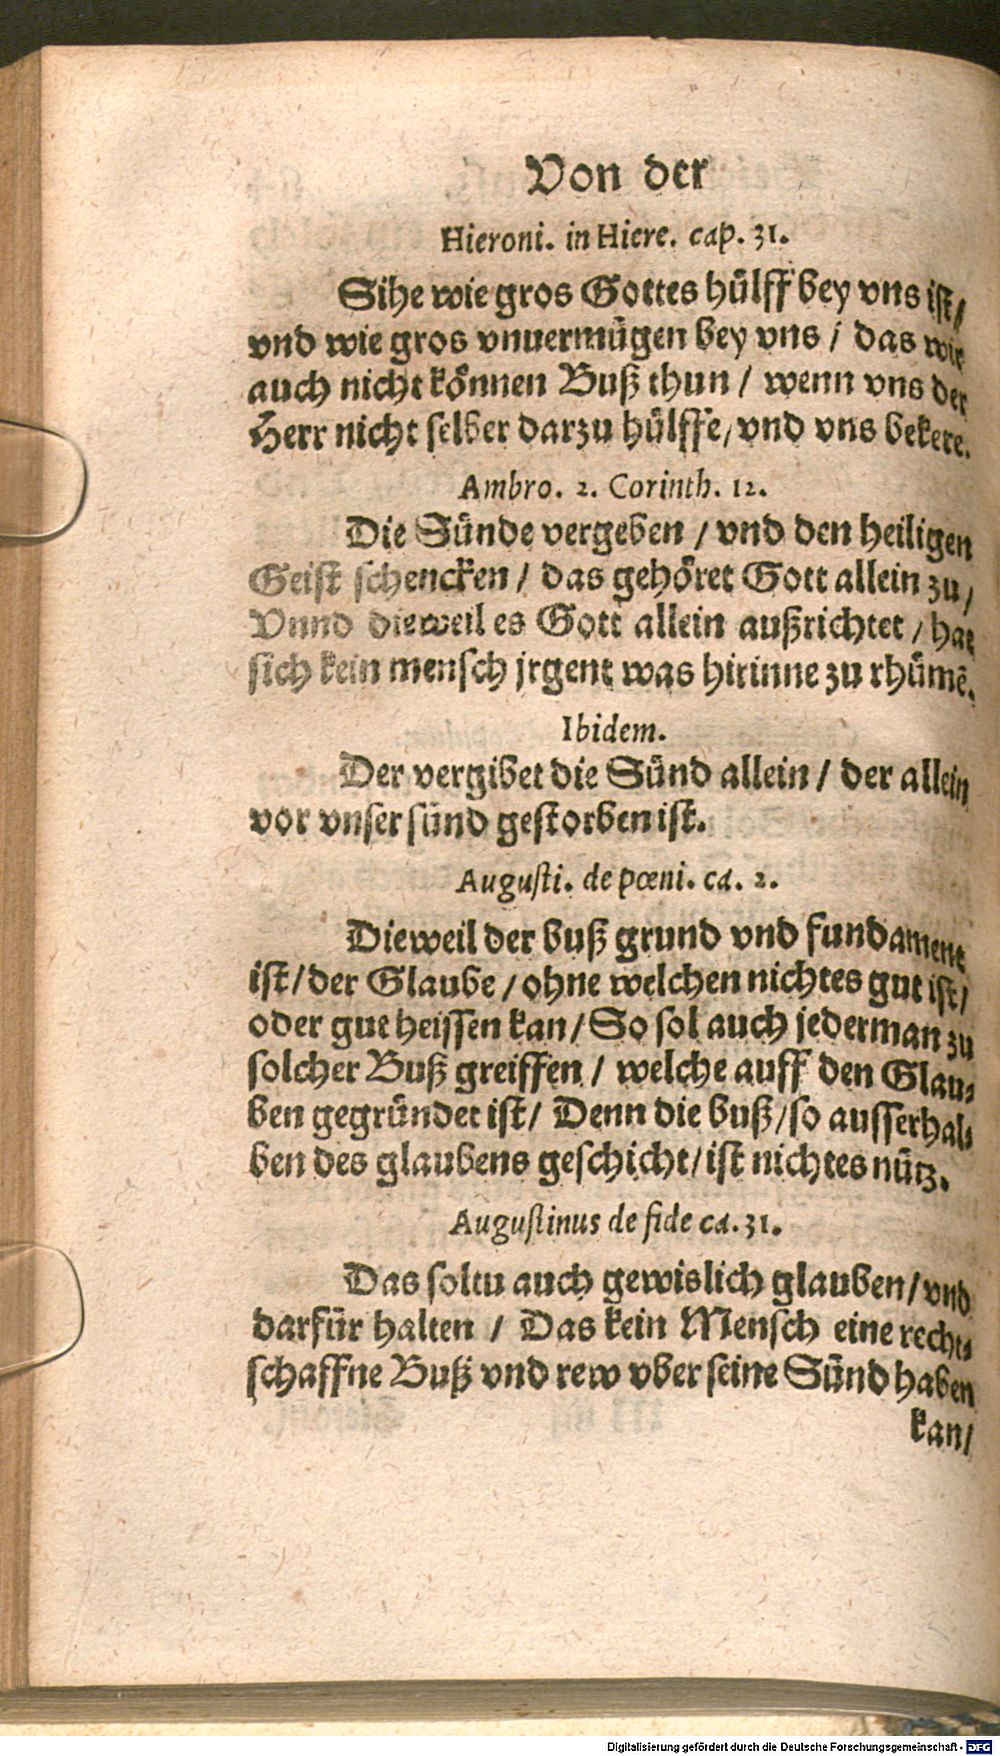 Von der
Hieroni. in Hiere. cap. 31.
Sihe wie gros Gottes hülff bey vns ist/
vnd wie gros vnuermügen bey vns / das wir
auch nicht können Buß thun / wenn vns der
Herr nicht selber darzu hülffe/ vnd vns bekere.
Ambro. 2. Corinth. 12.
Die Sünde vergeben / vnd den heiligen
Geist schencken / das gehöret Gott allein zu/
Vnnd dieweil es Gott allein außrichtet / hat
sich kein mensch jrgent was hirinne zu rhümē.
Ibidem.
Der vergibet die Sünd allein / der allein
vor vnser sünd gestorben ist.
Augusti. de pœni. ca. 2.
Dieweil der buß grund vnd fundament
ist/ der Glaube / ohne welchen nichtes gut ist/
oder gut heissen kan/ So sol auch jederman zu
solcher Buß greiffen / welche auff den Glau⸗
ben gegründet ist/ Denn die buß/ so ausserhal⸗
ben des glaubens geschicht/ ist nichtes nütz.
Augustinus de fide ca. 31.
Das soltu auch gewislich glauben/ vnd
darfür halten / Das kein Mensch eine recht⸗
schaffne Buß vnd rew vber seine Sünd haben
kan/
Digitalisierung gefördert durch die Deutsche Forschungsgemeinschaft - DFG